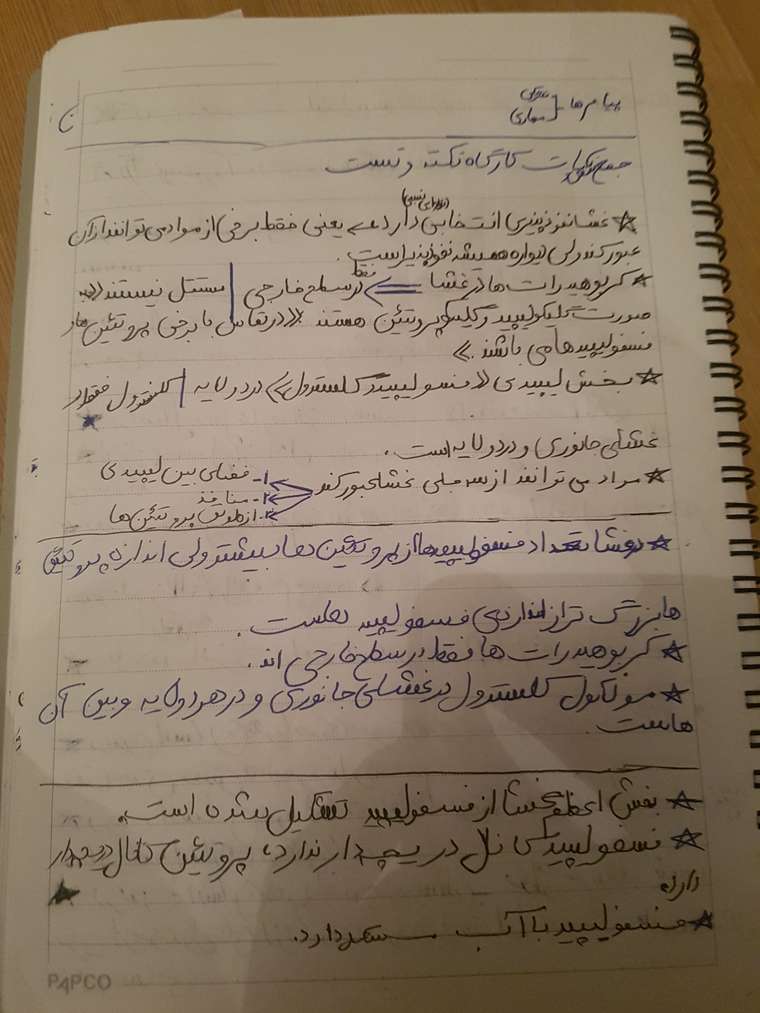 پیام‌رها
جمع نکات کارگاه نکته و تست
☆ غشا نفوذپذیری انتخابی (تراوایی نسبی) دارد یعنی فقط برخی از مواد می توانند از آن
عبور کند ولی دیواره همیشه نفوذپذیر است.
☆ کربوهیدرات ها در غشا ⇐ فقط در سطح خارجی | مستقل نیستند «به
صورت گلیکولیپید و گلیکوپروتئین هستند» «در تماس با برخی پروتئین ها و
فسفولیپیدها می باشند.»
☆ بخش لیپیدی «فسفولیپید و کلسترول» در دو لایه | کلسترول فقط در
غشای جانوری و در دو لایه است.
☆ مواد می توانند از سه محل غشا عبور کند
1- فضای بین لیپیدی
2- منافذ
3- از طریق پروتئین ها
☆ در غشا تعداد فسفولیپیدها از پروتئین ها بیشتر ولی اندازه پروتئین
ها بزرگ تر از اندازه ی فسفولیپید هاست.
☆ کربوهیدرات ها فقط در سطح خارجی اند.
☆ مولکول کلسترول در غشای جانوری و در هر دو لایه و بین آن
هاست.
☆ بخش اعظم غشا از فسفولیپید تشکیل شده است.
☆ فسفولیپید کانال دریچه دار ندارد، پروتئین کانال دریچه دار
دارد
☆ فسفولیپید با آب دارد.
PAPCO